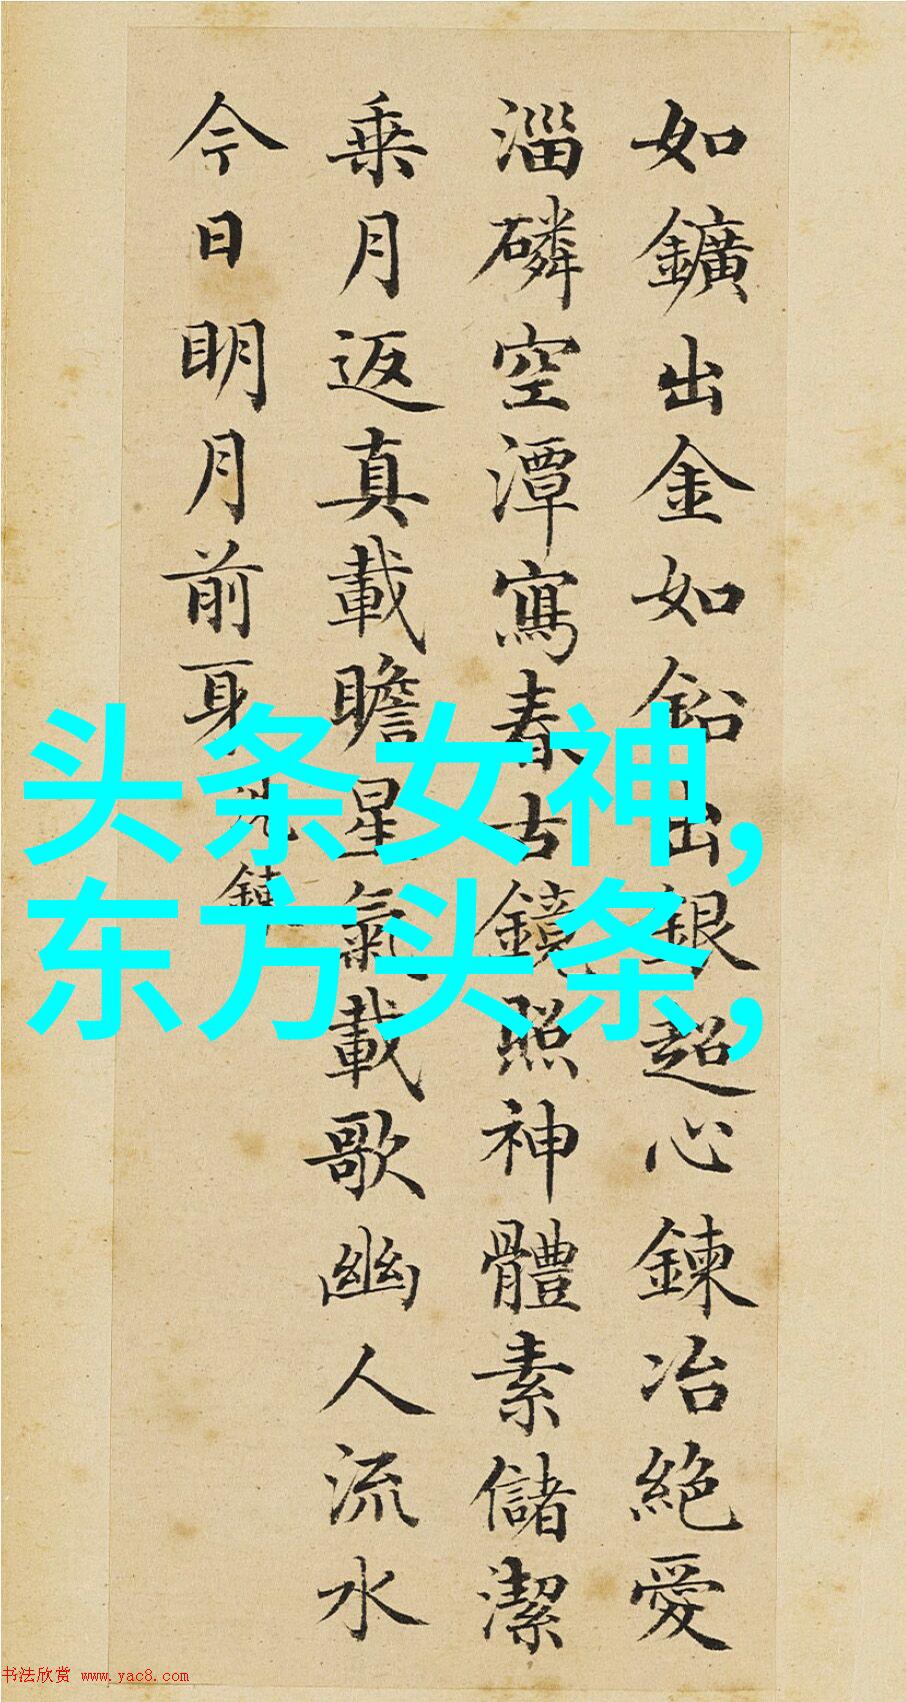 如鑛出金如鉛出銀超心鍊冶絕愛
淄磷空潭寫春古鏡照神體素儲潔
乘月返真載瞻星氣載歌幽人流水
今日明月前身洗鍊
头条女神,
东方头条,
书法欣赏 www.yac8.com